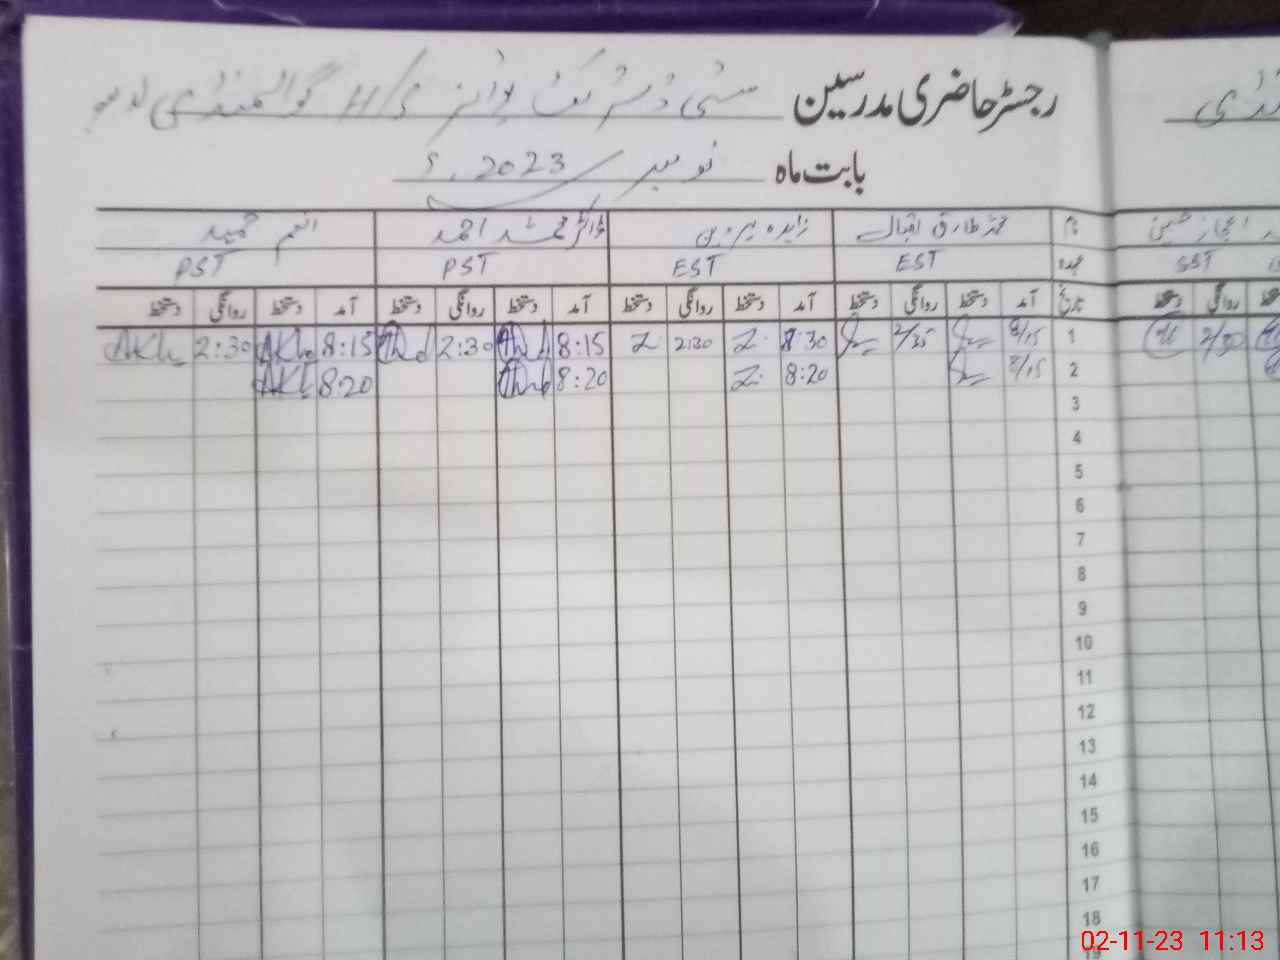 رجسٹر حاضری مدرسین سٹی ڈسٹرکٹ بوائز H/S گوالمنڈی لاہور
بابت ماہ نومبر 2023ء
نام محمد طارق اقبال زاہدہ پروین ڈاکٹر محمد احمد انعم حمید
عہدہ EST EST PST PST
تاریخ آمد دستخط روانگی دستخط آمد دستخط روانگی دستخط آمد دستخط روانگی دستخط آمد دستخط روانگی دستخط
1 8/15 2/35 8:30 Z 2:30 Z 8:15 2:30 8:15 2:30
2 8/15 8:20 Z 8:20 8:20
3
4
5
6
7
8
9
10
11
12
13
14
15
16
17
18
19
نڈی
اعجاز حسین
SST
روانگی دستخط
2/30
02-11-23 11:13